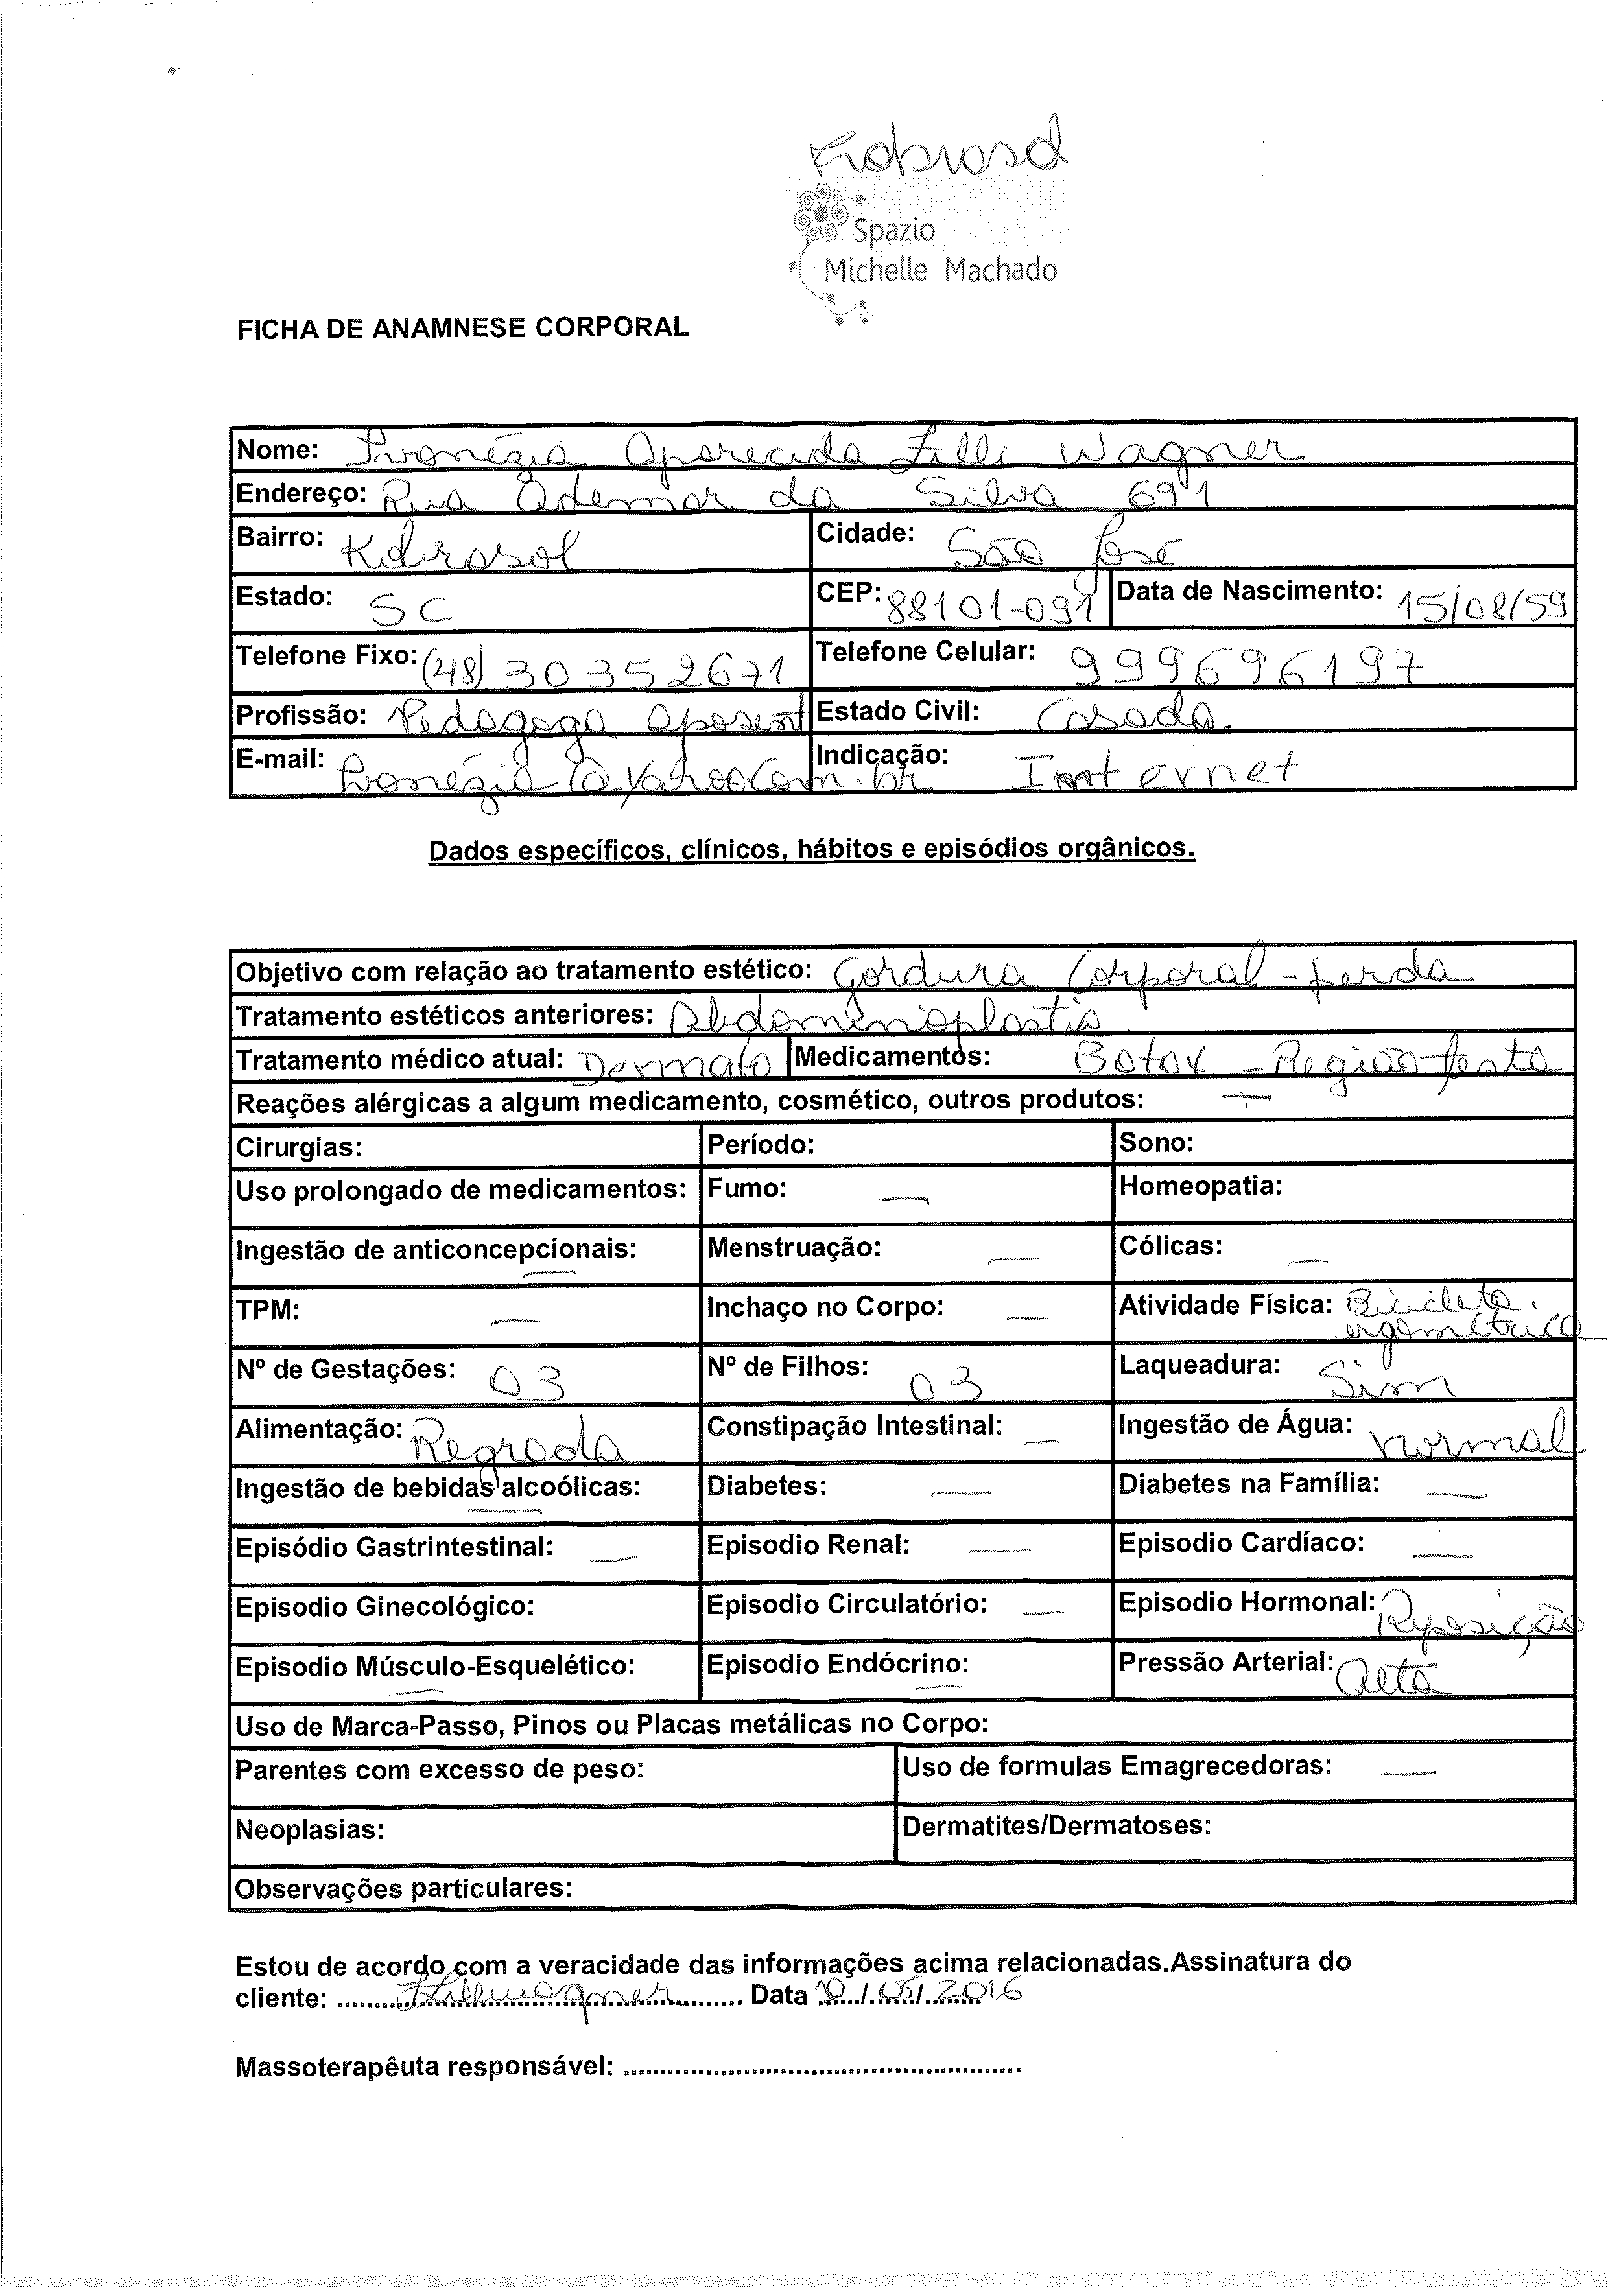 Kobrasol
Spazio
Michelle Machado
FICHA DE ANAMNESE CORPORAL
Nome: Ivonézia Aparecida Lilli Wagner
Endereço: Rua Ademar da Silva 691
Bairro: Kobrasol Cidade: São José
Estado: SC CEP: 88101-091 Data de Nascimento: 15/08/59
Telefone Fixo: (48) 30352671 Telefone Celular: 999696197
Profissão: Pedagoga aposent Estado Civil: Casada
E-mail: ivonézia@yahoo.com.br Indicação: Internet
Dados específicos, clínicos, hábitos e episódios orgânicos.
Objetivo com relação ao tratamento estético: Gordura Corporal - perda
Tratamento estéticos anteriores: Abdomenioplastia
Tratamento médico atual: Dermato Medicamentos: Botox - Região testa
Reações alérgicas a algum medicamento, cosmético, outros produtos: —
Cirurgias: Período: Sono:
Uso prolongado de medicamentos: Fumo: — Homeopatia:
Ingestão de anticoncepcionais: — Menstruação: — Cólicas: —
TPM: — Inchaço no Corpo: — Atividade Física: Bicicleta
ergométrica
Nº de Gestações: 03 Nº de Filhos: 03 Laqueadura: Sim
Alimentação: Regrada Constipação Intestinal: — Ingestão de Água: normal
Ingestão de bebidas alcoólicas: — Diabetes: — Diabetes na Família: —
Episódio Gastrintestinal: — Episodio Renal: — Episodio Cardíaco: —
Episodio Ginecológico: Episodio Circulatório: — Episodio Hormonal: Reposição
Episodio Músculo-Esquelético: — Episodio Endócrino: — Pressão Arterial: alta
Uso de Marca-Passo, Pinos ou Placas metálicas no Corpo:
Parentes com excesso de peso: Uso de formulas Emagrecedoras: —
Neoplasias: Dermatites/Dermatoses:
Observações particulares:
Estou de acordo com a veracidade das informações acima relacionadas.Assinatura do
cliente: ........ Data ..../.05/.2016
Massoterapêuta responsável: ......................................................